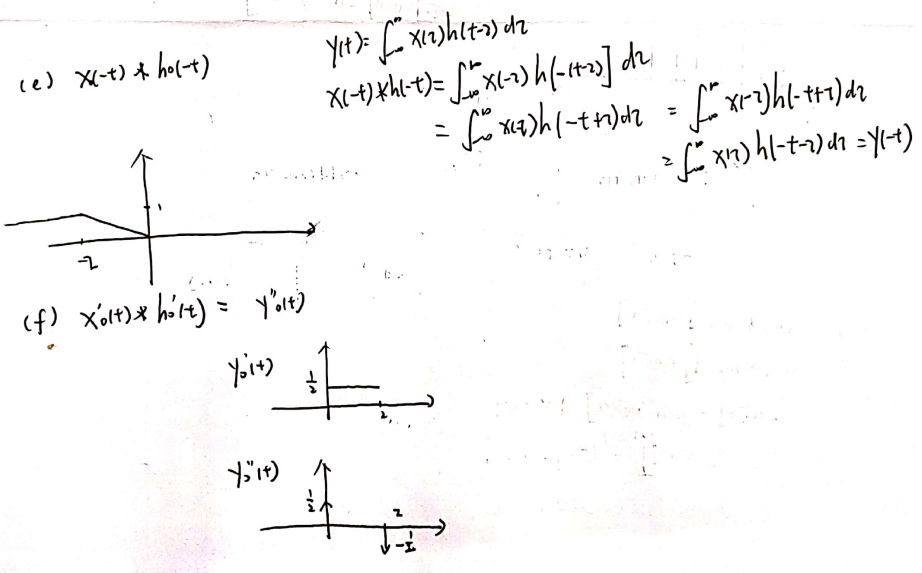 y(t)= ∫_{-∞}^{∞} x(τ)h(t-τ) dτ
(e) x(-t) * h₀(-t)
x(-t)*h(-t)= ∫_{-∞}^{∞} x(-τ) h[-(t-τ)] dτ = ∫_{-∞}^{∞} x(-τ)h(-t+τ)dτ
= ∫_{-∞}^{∞} x(τ)h(-t+τ)dτ = ∫_{-∞}^{∞} x(τ) h(-t-τ) dτ = y(-t)
1
-2
(f) x₀'(t) * h₀'(t) = y₀''(t)
y₀'(t)
1/2
2
y₀''(t)
1/2
2
-1/2